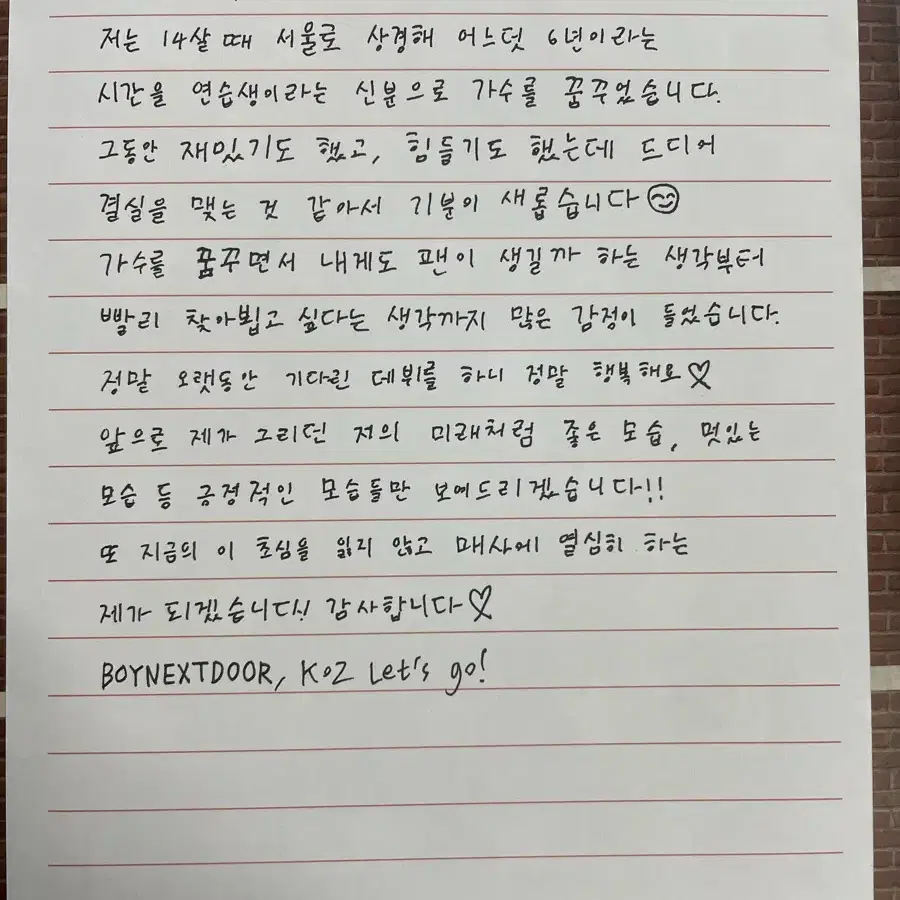 저는 14살 때 서울로 상경해 어느덧 6년이라는
시간을 연습생이라는 신분으로 가수를 꿈꾸었습니다.
그동안 재밌기도 했고, 힘들기도 했는데 드디어
결실을 맺는 것 같아서 기분이 새롭습니다
가수를 꿈꾸면서 내게도 팬이 생길까 하는 생각부터
빨리 찾아뵙고 싶다는 생각까지 많은 감정이 들었습니다.
정말 오랫동안 기다린 데뷔를 하니 정말 행복해요♡
앞으로 제가 그리던 저의 미래처럼 좋은 모습, 멋있는
모습 등 긍정적인 모습들만 보여드리겠습니다!!
또 지금의 이 초심을 잃지 않고 매사에 열심히 하는
제가 되겠습니다! 감사합니다♡
BOYNEXTDOOR, KOZ Let's go!